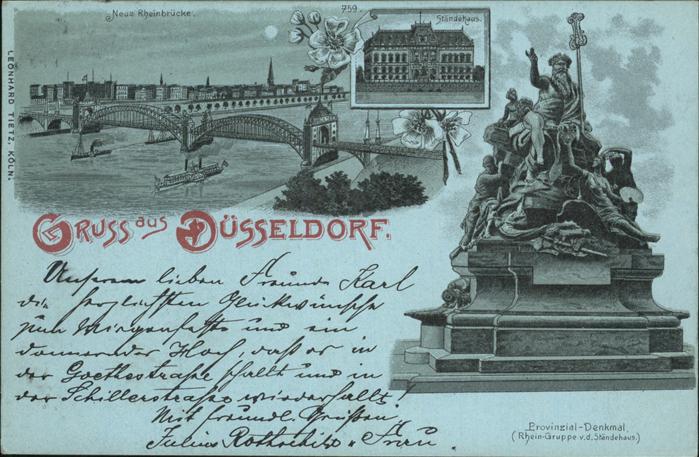 Neue Rheinbrücke.
759.
Ständehaus.
LEONHARD TIETZ, KÖLN.
GRUSS aus DÜSSELDORF.
Unserem lieben Freunde Karl
die herzlichsten Glückwünsche
zum Wiegenfeste und ein
donnernder Hoch, daß er in
der Goethestraße schallt und in
der Schillerstraße wiederhallt!
Mit freundl. Grüßen
Julius Rothschild u. Frau.
Provinzial-Denkmal.
(Rhein-Gruppe v. d. Ständehaus.)